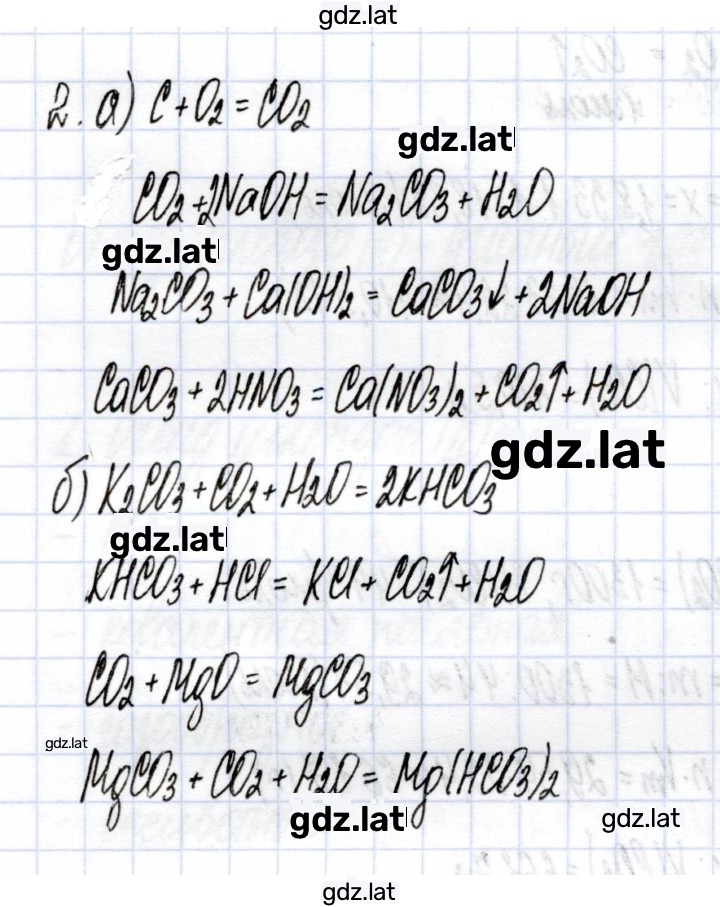 gdz.lat
2. а) C + O₂ = CO₂
gdz.lat
CO₂ + 2NaOH = Na₂CO₃ + H₂O
gdz.lat
Na₂CO₃ + Ca(OH)₂ = CaCO₃↓ + 2NaOH
CaCO₃ + 2HNO₃ = Ca(NO₃)₂ + CO₂↑ + H₂O
gdz.lat
б) K₂CO₃ + CO₂ + H₂O = 2KHCO₃
gdz.lat
KHCO₃ + HCl = KCl + CO₂↑ + H₂O
CO₂ + MgO = MgCO₃
gdz.lat
MgCO₃ + CO₂ + H₂O = Mg(HCO₃)₂
gdz.lat
gdz.lat
gdz.lat